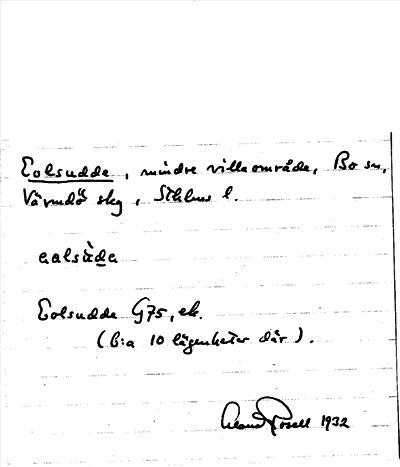 Eolsudde, mindre villaområde, Bo sn,
Värmdö skg, Sthlms l.
Eolsudde G75, ek.
(B:a 10 lägenheter där).
Rosell 1932